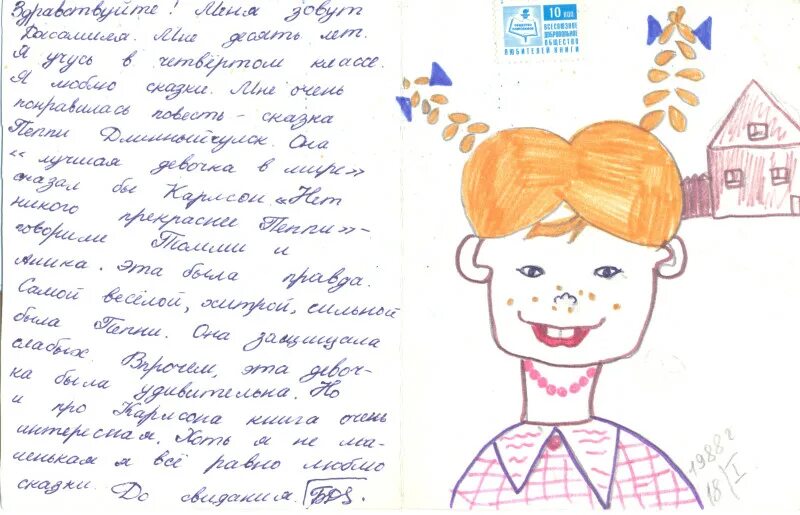 Здравствуйте! Меня зовут
Василиля. Мне десять лет.
Я учусь в четвёртом классе.
Я люблю сказки. Мне очень
понравилась повесть - сказка
Пеппи Длинныйчулок. Она
"лучшая девочка в мире"
сказал бы Карлсон. "Нет
никого прекраснее Пеппи" -
говорили Томми и
Аника. Эта была правда.
Самой весёлой, хитрой, сильной
была Пеппи. Она защищала
слабых. Впрочем, эта девоч-
ка была удивительна. Но
и про Карлсона книга очень
интересная. Хоть я не ма-
ленькая я всё равно люблю
сказки. До свидания.
10 коп
ВСЕСОЮЗНОЕ
ДОБРОВОЛЬНОЕ
ОБЩЕСТВО
ЛЮБИТЕЛЕЙ КНИГИ
1988 г
18/I